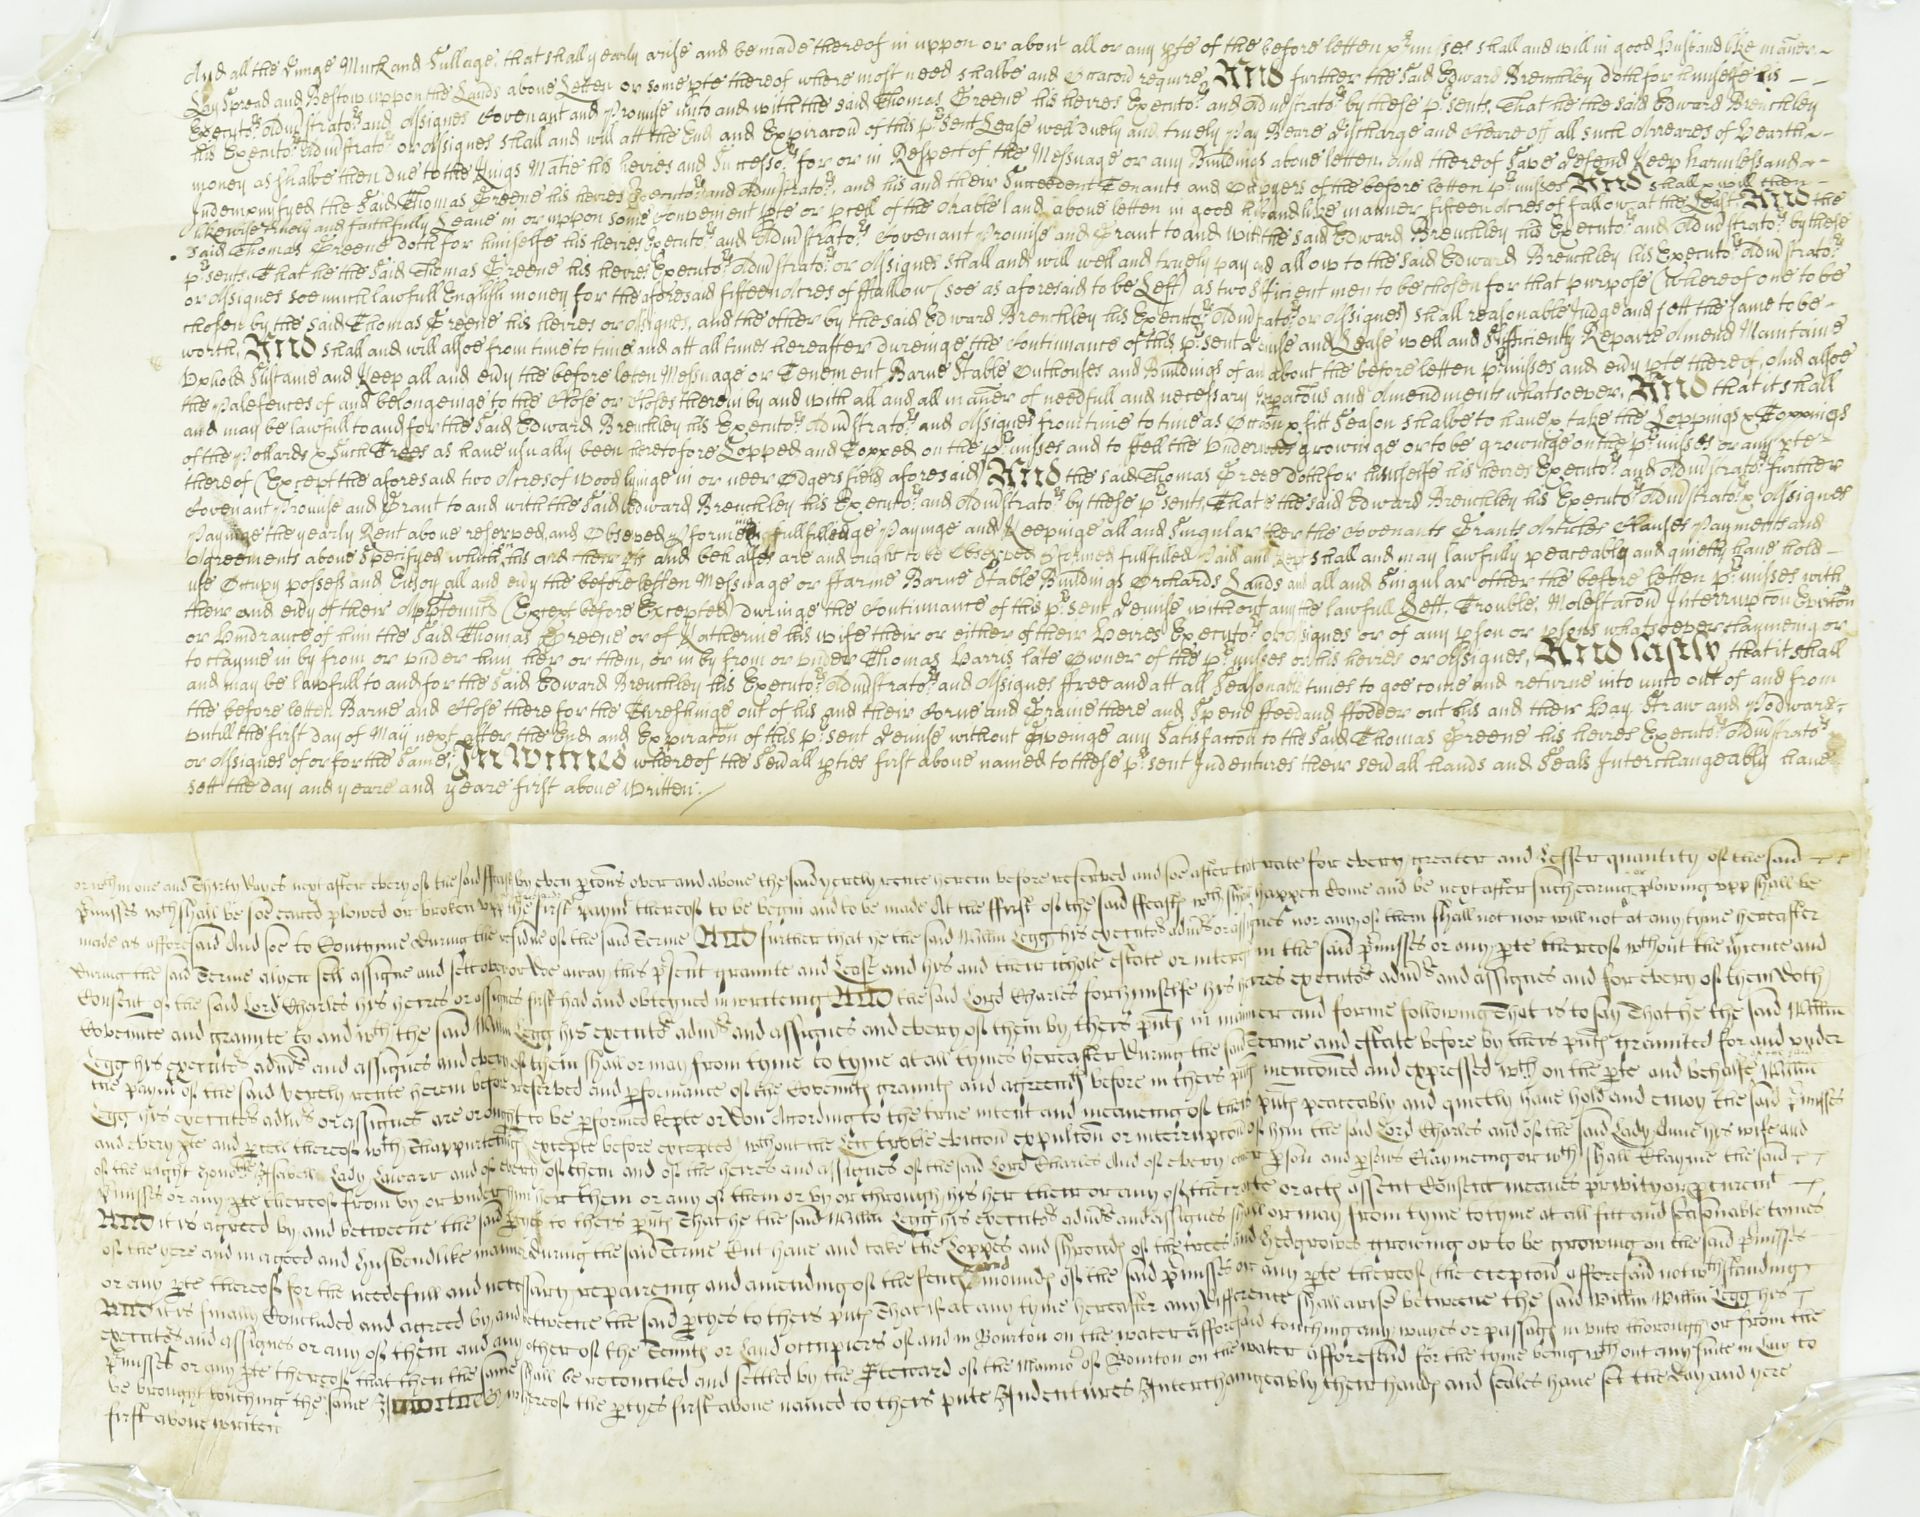 And all the Dunge Muck and Sullage, that shall yearly arise and be made thereof in uppon or about all or any pte of the before letten p'misses shall and will in good husbandlike maner
Lay Spread and Bestow uppon the Lands above Letten or some pte thereof where most need shalbe and Occacon require, And further the said Edward Brenchley doth for himselfe his
Executors Administrators and Assignes Covenant and Promise unto and with the said Thomas Greene his heires Executors and Administrators by these p'sents, That he the said Edward Brenchley
his Executors Administrators or Assignes shall and will att the End and Expiracon of this p'sent Lease well duely and truely Pay Beare discharge and Cleare off all such Arreares of Hearth
money as shalbe then due to the Kings Matie his heires and Successors for or in Respect of the Messuage or any Buildings above letten, And thereof Save defend Keep harmless and
Indempnifyed the said Thomas Greene his heires Executors and Administrators, and his and their Succeedent Tenants and Occupyers of the before letten p'misses And shall & will then
likewise truely and faithfully Leave in or uppon some convenient pte or pcell of the Arable land above letten in good husbandlike manner fifteen Acres of fallow at the least And the
said Thomas Greene doth for himselfe his heires Executors and Administrators Covenant Promise and Grant to and with the said Edward Brenchley his Executors and Administrators by these
p'sents, That he the said Thomas Greene his heires Executors Administrators or Assignes shall and will well and truely pay and allow to the said Edward Brenchley his Executors Administrators
or Assignes soe much lawfull English money for the aforesaid fifteen Acres of ffallow (soe as aforesaid to be Left) as two Sificient men to be chosen for that purpose (whereof one to be
chosen by the said Thomas Greene his heires or Assignes, and the other by the said Edward Brenchley his Executors Administrators or Assignes) shall reasonable Judge and sett the same to be
worth, And shall and will alsoe from time to time and att all times hereafter dureinge the Continuance of this p'sent demise and Lease well and Sufficiently Repaire Amend Maintaine
Uphold Sustaine and Keep all and every the before leten Messuage or Tenement Barne Stable Outhouses and Buildings of and about the before letten p'misses and every pte thereof, And alsoe
the Palefences of and belongeinge to the Close or Closes therein by and with all and all manner of needfull and necessary reparacons and Amendments whatsoever, And that it shall
and may be lawfull to and for the said Edward Brenchley his Executors Administrators and Assignes from time to time as Occacon & fitt Season shalbe to have & take the Loppings & Toppings
of the Pollards & such Trees as have usually been heretofore Lopped and Topped on the p'misses and to ffell the Underwoodes growinge or to be growinge on the p'misses or any pte
thereof (Except the aforesaid two Acres of wood lyinge in or neer Odgers field aforesaid) And the said Thomas Greene doth for himselfe his heires Executors and Administrators further
Covenant Promise and Grant to and with the said Edward Brenchley his Executors and Administrators by these p'sents, That the said Edward Brenchley his Executors Administrators & Assignes
Payinge the yearly Rent above reserved, and Observeing p'formeing fullfillinge Payinge and Keepinge all and Singular other the Covenants Grants Articles Clauses Payments and
Agreements above Specifyed which on his and their pts and behalfes are and ought to be Observed p'formed fullfilled Paid and kept shall and may lawfully peaceably and quietly have hold
use Occupy possess and Enjoy all and every the before letten Messuage or ffarme Barne Stable Buildings Orchards Lands and all and Singular other the before letten p'misses with
their and every of their Appurtenncs (Except before Excepted) duringe the Continuance of this p'sent demise without any lawfull Lett, Trouble, Molestacon Interrupcon Eviction
or hindrance of him the said Thomas Greene or of Katherine his wife their or either of their Heires Executors or Assignes or of any pson or psons whatsoever claymeing or
to clayme in by from or under him, her or them, or in by from or under Thomas Harris late Owner of the p'misses or his heires or Assignes, And lastly that it shall
and may be lawfull to and for the said Edward Brenchley his Executors Administrators and Assignes ffree and att all Seasonable times to goe come and returne into unto out of and from
the before letten Barne and Close there for the Threshinge out of his and their Corne and Graine there and Spend ffeed and ffodder out his and their Hay Straw and Podware
untill the first day of May next after the End and Expiracon of this p'sent demise without Giveinge any Satisfaccon to the said Thomas Greene his heires Executors Administrators
or Assignes of or for the same, In Witnes whereof the Sev'all pties first above named to these p'sent Indentures their sev'all hands and Seals Interchangeably have
sett the day and yeare and yeare first above Written.
or wthin one and Thirty dayes next after every of the said ffeasts by even porcons over and above the said yerely rente herein before reserved and soe after that rate for every greater and Lesser quantity of the said
p'misses wch shall be soe eared plowed or broken upp the first paymt thereof to be begin and to be made At the ffirst of the said ffeasts wch shall happen Come and be next after such earing or plowing upp shall be
made as afforesaid And soe to Contynue during the residue of the said Terme And further that he the said Willm Legg his executrs admrs or assignes nor any of them shall not nor will not at any tyme hereafter
During the said Terme alyen sell assigne and sett over or Doe away this p'sent graunte and Lease and his and their whole estate or interest in the said p'misses or any pte thereof wthout the lycence and
Consent of the said Lord Charles his heires or assignes first had and obteyned in writeing And the said Lord Charles for himselfe his heires executrs admrs and assignes and for every of them Doth
Covennte and graunte to and wth the said Willm Legg his executrs admrs and assignes and every of them by theis p'nts in manner and forme following That is to say That he the said Willm
Legg his executrs admrs and assignes and every of them shall or may from tyme to tyme at all tymes hereafter During the said Terme and estate before by theis p'nts graunted for and under
the paymt of the said Yerely rente herein before reserved and p'formance of the Covennts graunts and agreemts before in theis p'nts mentioned and expressed wch on the pte and behalfe Willm
Legg his executrs admrs or assignes are or ought to be p'formed kepte or Don According to the true intent and meaneing of theis p'nts peaceably and quietly have hold and enioy the said p'misses
and every pte and p'cell thereof wth Thappurtenncs excepte before excepted wthout the Lett trouble eviccon expulcon or interrupcon of him the said Lord Charles and of the said Lady Anne his wife and
of the right honoble Isabell Lady and of every of them and of the heires and assignes of the said Lord Charles And of every other p'son and p'sons Claymeing or wch shall Clayme the said
p'misses or any pte thereof from by or under him her them or any of them or by or through his her their or any of their estate or acts assent Consent meanes privity or p'curemt
And it is agreed by and betweene the said p'tyes to theis p'nts That he the said Willm Legg his executrs admrs and assignes shall or may from tyme to tyme at all fitt and seasonable tymes
of the yere and in a good and husbandlike manner during the said Terme Cut have and take the Loppes and shrouds of the trees and hedgrowes growing or to be growing on the said p'misses
or any pte thereof for the needefull and necessary repaireing and amending of the fencs and mounds of the said p'misses or any pte thereof the excepcon afforesaid notwthstanding
And it is finally Concluded and agreed by and betweene the said p'tyes to theis p'nts That if at any tyme hereafter any Difference shall arise betweene the said Willm Willm Legg his
executrs and assignes or any of them and any other of the Tennts or Land occupiers of and in Bourton on the water afforesaid touching any wayes or passags in unto thorough or from the
p'misses or any pte thereof that then the same shall be reconciled and settled by the Steward of the Mannor of Bourton on the water afforesaid for the tyme being wthout any suite in Law to
be brought touching the same In witnes whereof the p'tyes first above named to theis p'nte Indentures Interchangeably their hands and seales have sett the Day and yere
first above writen